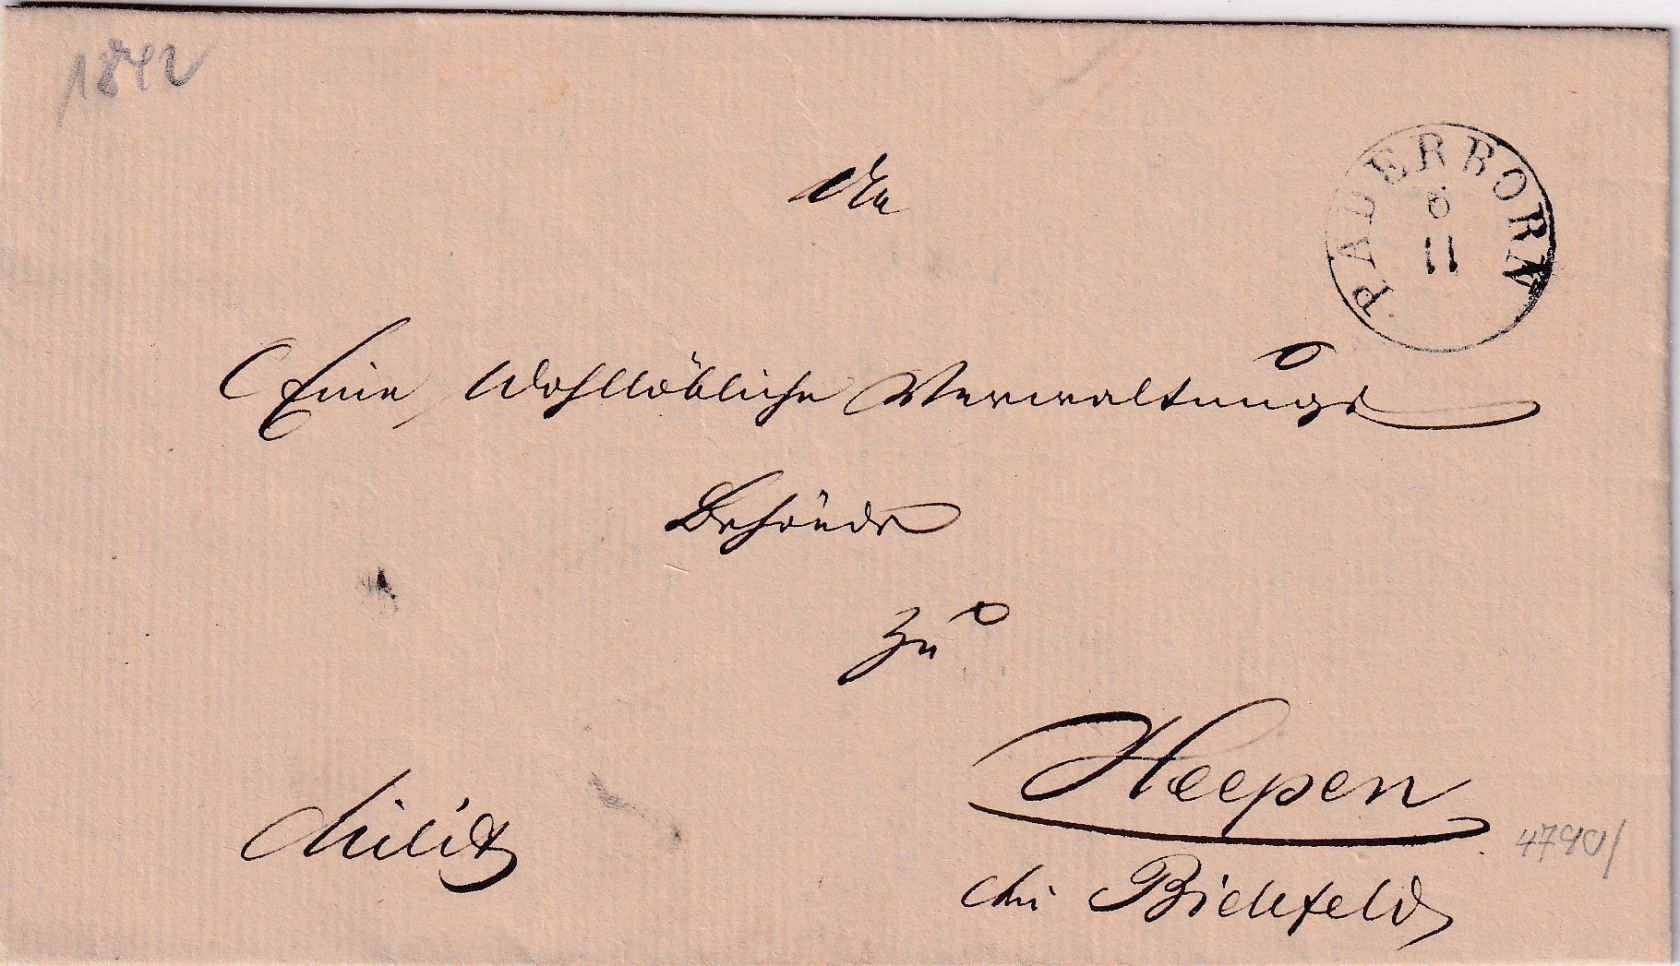 1842
An
PADERBORN
6
11
Eine Wohllöbliche Verwaltungs
Behörde
zu
Heepen
bei Bielefeld
Milit
4790/